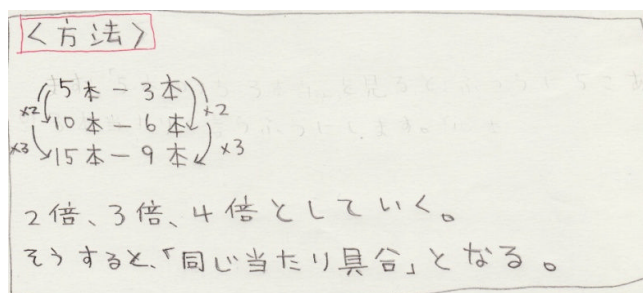 〈方法〉
5本－3本
×2 10本－6本 ×2
×3 15本－9本 ×3
2倍、3倍、4倍としていく。
そうすると、「同じ当たり具合」となる。